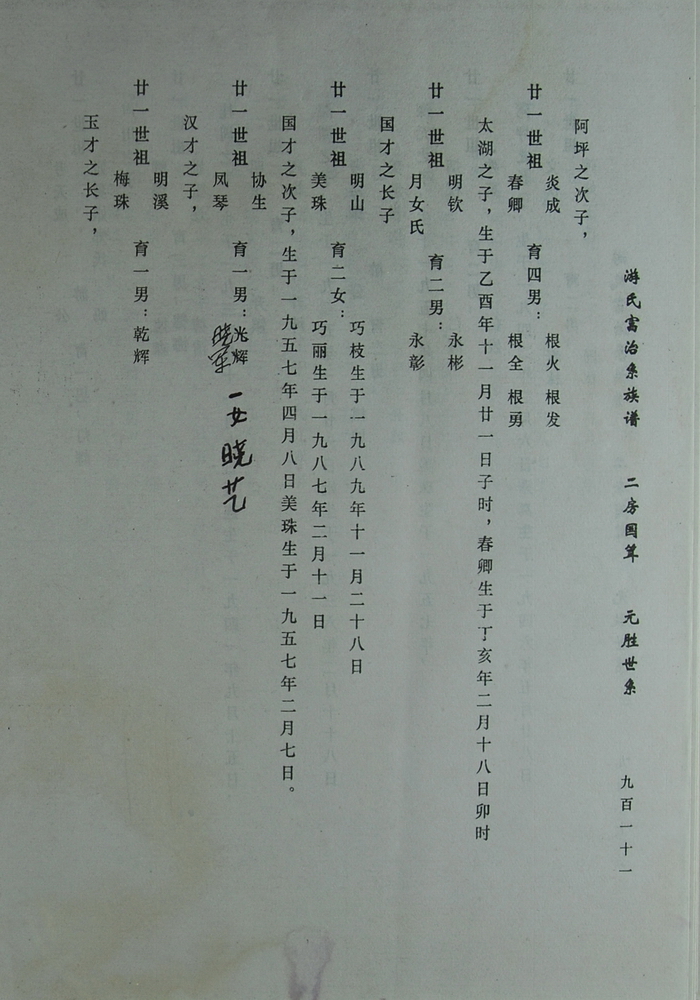 游氏富治系族谱 二房国茸 元胜世系 九百一十一
阿坪之次子，
廿一世祖 炎成 春卿 育四男： 根火 根发 根全 根勇
太湖之子，生于乙酉年十一月廿一日子时，春卿生于丁亥年二月十八日卯时
廿一世祖 明钦 月女氏 育二男： 永彬 永彰
国才之长子
廿一世祖 明山 美珠 育二女： 巧枝生于一九八九年十一月二十八日 巧丽生于一九八七年二月十一日
国才之次子，生于一九五七年四月八日美珠生于一九五七年二月七日。
廿一世祖 协生 凤琴 育一男：光辉 一女 晓艺
汉才之子，
廿一世祖 明溪 梅珠 育一男：乾辉
玉才之长子，